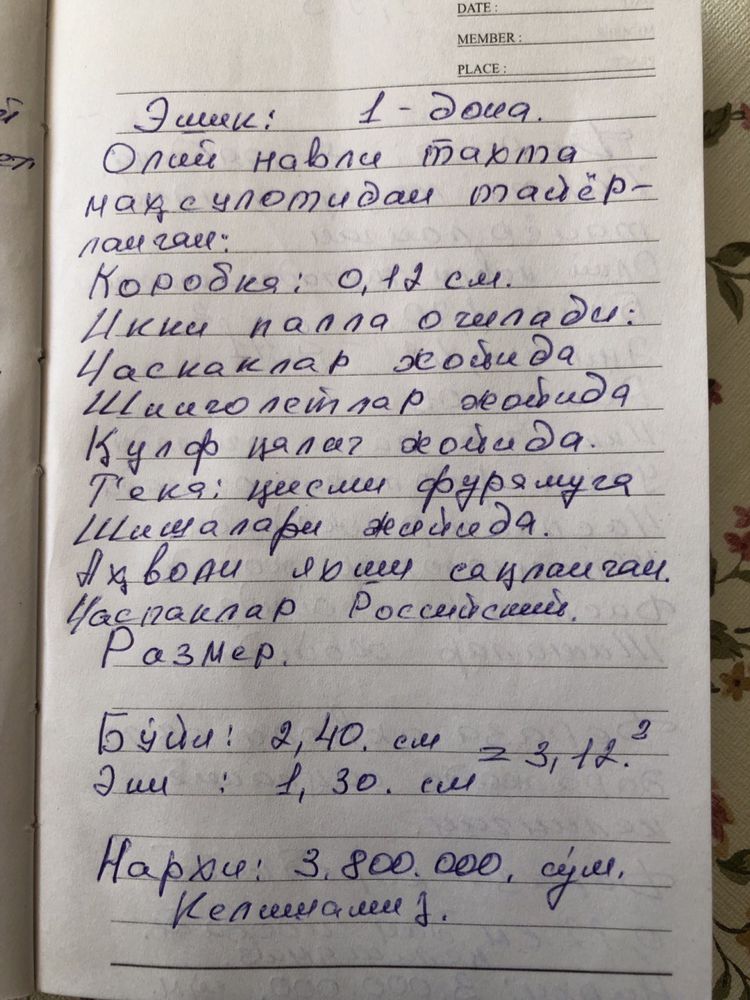 DATE :
MEMBER :
PLACE :
Эшик: 1 - дона.
Олий навли тахта
маҳсулотидан тайёр-
ланган:
Коробка: 0,12 см.
Икки палла очилади:
Часпаклар жойида
Шпинголетлар жойида
Қулф қалағ жойида.
Тепа: қисми фурямуга
Шишалари жойида.
Аҳволи яхши сақланган.
Часпаклар Российский.
Размер.
Бўйи: 2,40. см = 3,12.²
Эни : 1,30. см
Нархи: 3.800.000. сўм.
Келишамиз.